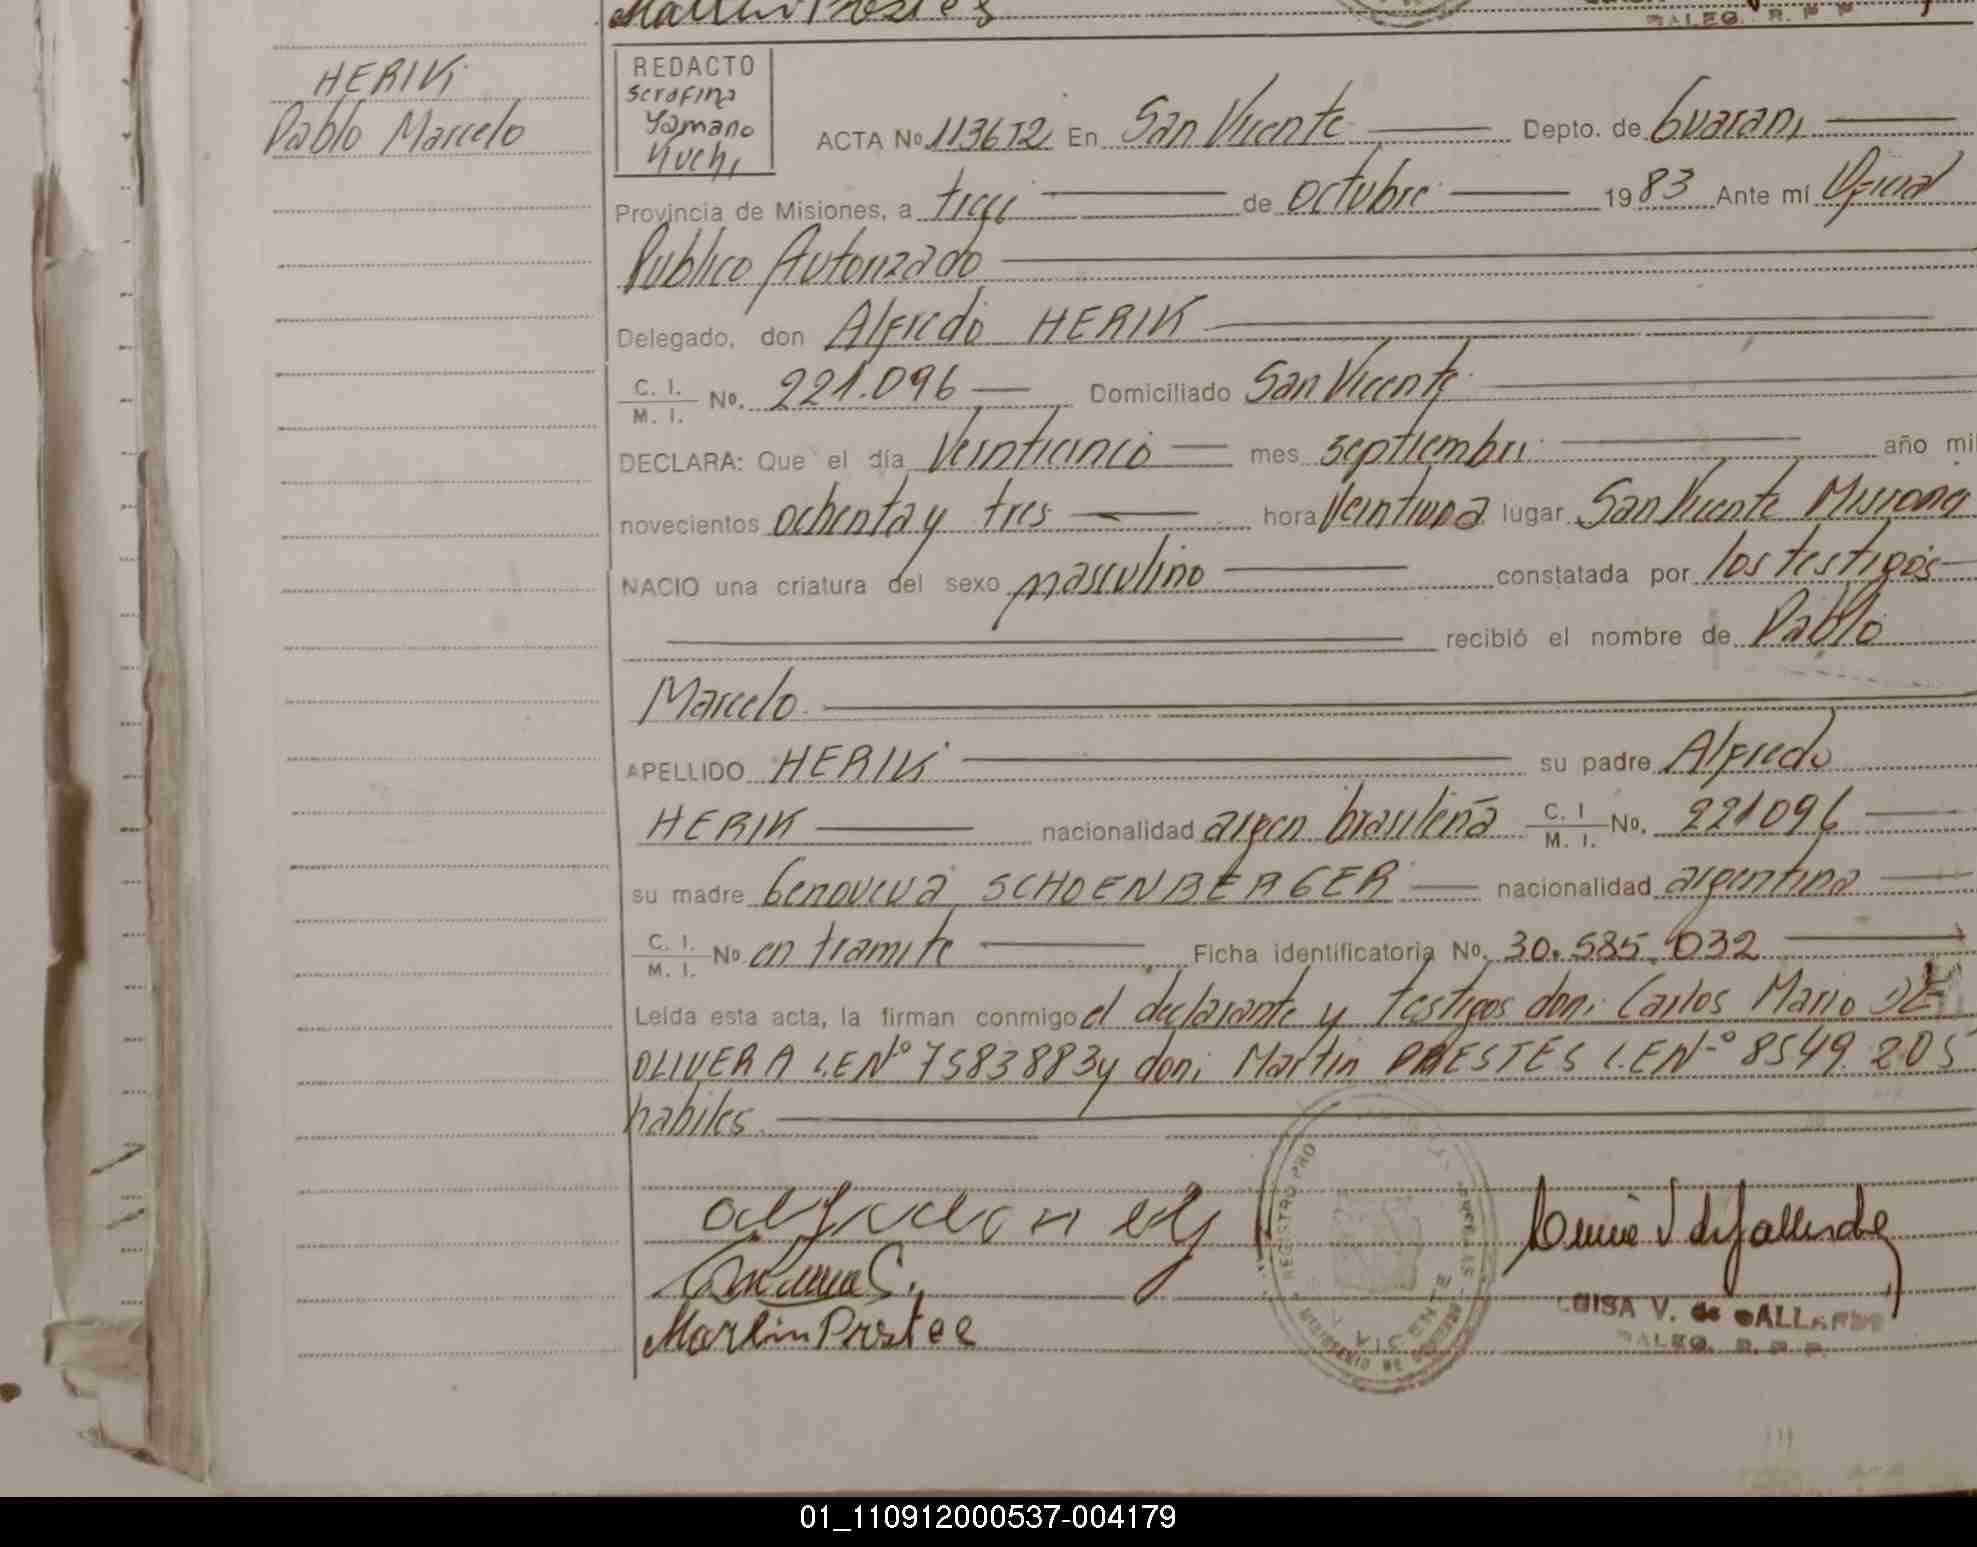 Martin Prestes
DALEG. R. P. P.
HERIK
Pablo Marcelo
REDACTO
Serafina
Yamano
Kuchi
ACTA No 113612 En San Vicente Depto. de Guarani
Provincia de Misiones, a trece de octubre 1983 Ante mí Oficial
Publico Autorizado
Delegado, don Alfredo HERIK
C. I. M. I. No. 221.096 Domiciliado San Vicente
DECLARA: Que el día Veinticinco mes septiembre año mi
novecientos ochenta y tres hora Veintiuna lugar San Vicente Misiones
NACIO una criatura del sexo masculino constatada por los testigos
recibió el nombre de Pablo
Marcelo
APELLIDO HERIK su padre Alfredo
HERIK nacionalidad argen brasileña C. I M. I. No. 221096
su madre Genoveva SCHOENBERGER nacionalidad argentina
C. I. M. I. No. en tramite Ficha identificatoria No. 30.585.032
Leída esta acta, la firman conmigo el declarante y testigos don: Carlos Mario DE
OLIVERA L.E Nº 7583883 y don: Martin PRESTES L.E Nº 8549.205
habiles.
REGISTRO PRO
SAN VICENTE
MINISTERIO DE GOBIERNO
Martin Prstee
LUISA V. de GALLARDO
DALEG. R. P. P.
01_110912000537-004179